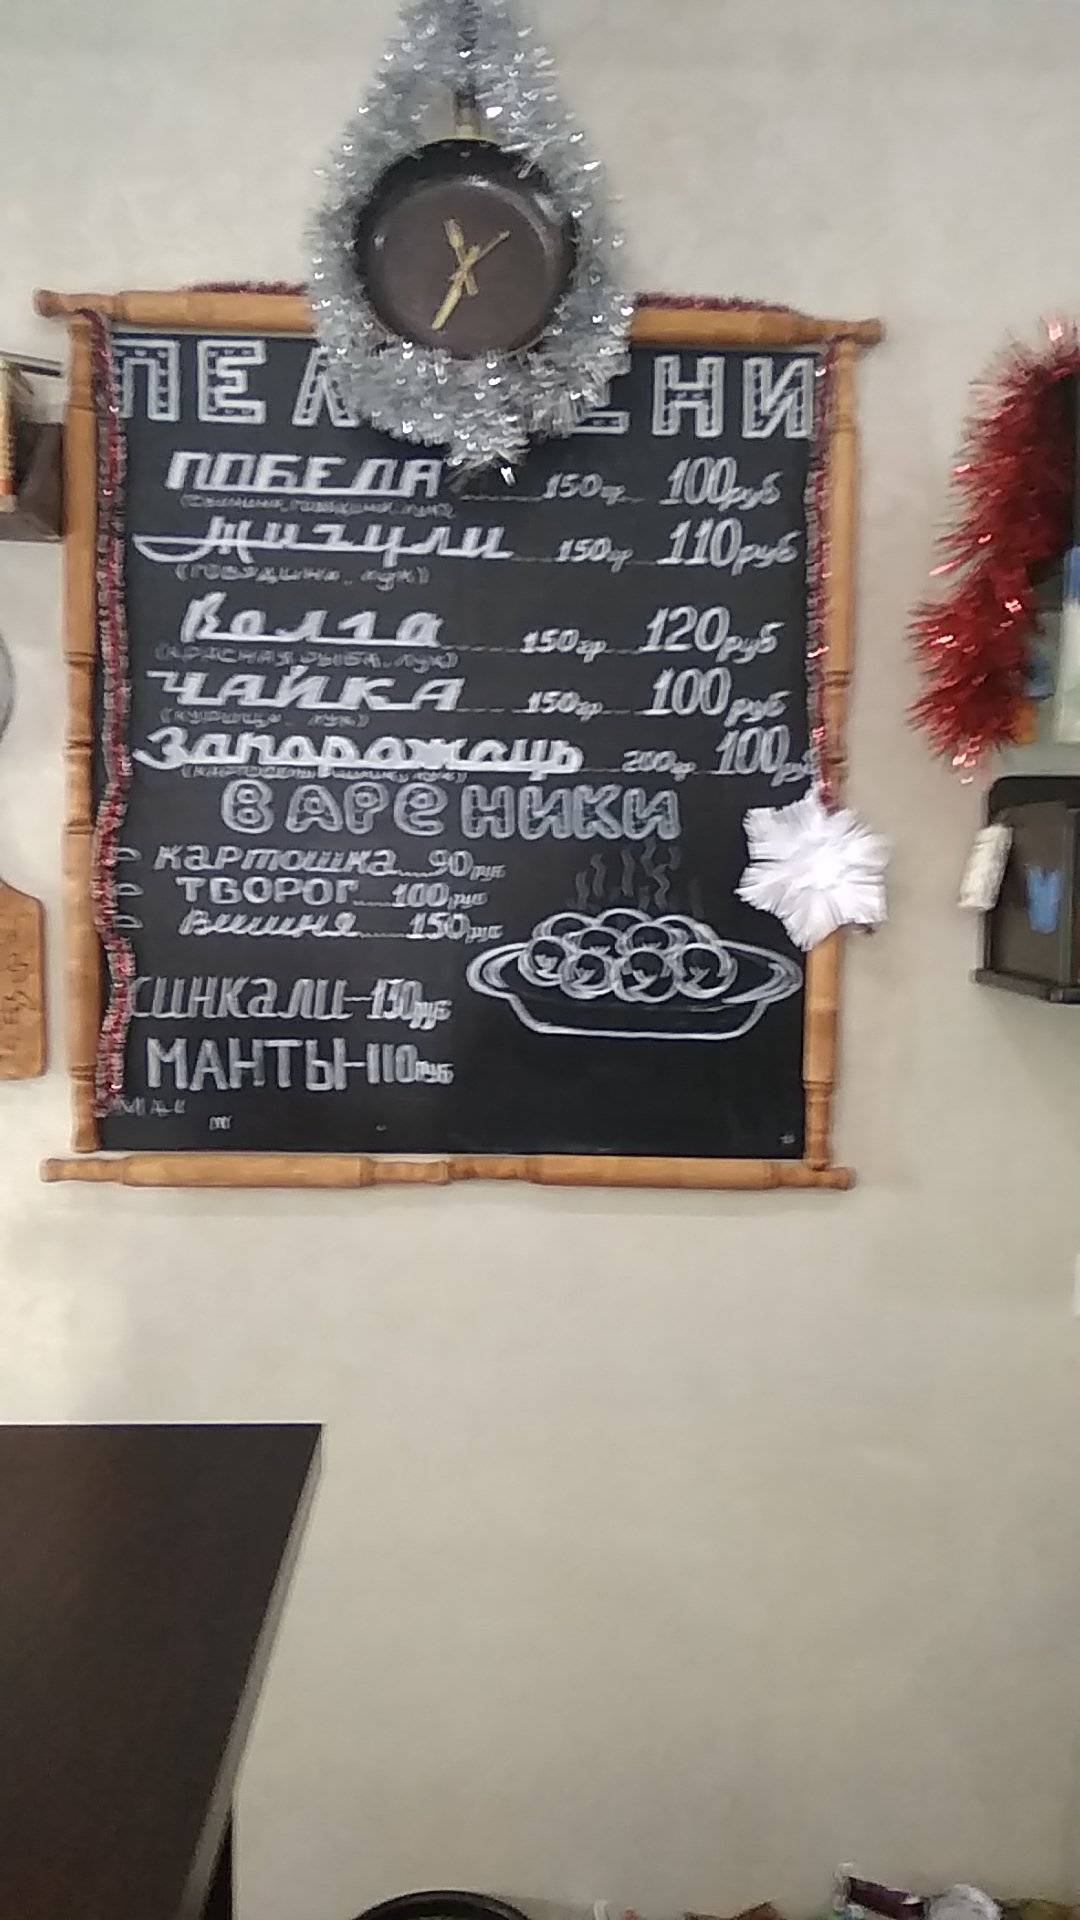 ПЕЛ ЕНИ
ПОБЕДА 150гр 100руб
(Свинина, говядина, лук)
Жигули 150гр 110руб
(говядина, лук)
Волга 150гр 120руб
(красная рыба, лук)
ЧАЙКА 150гр 100руб
(курица, лук)
Запорожец 200гр 100руб
ВАРЕНИКИ
картошка 90руб
ТВОРОГ 100руб
Вишня 150руб
хинкали-130руб
МАНТЫ-110руб